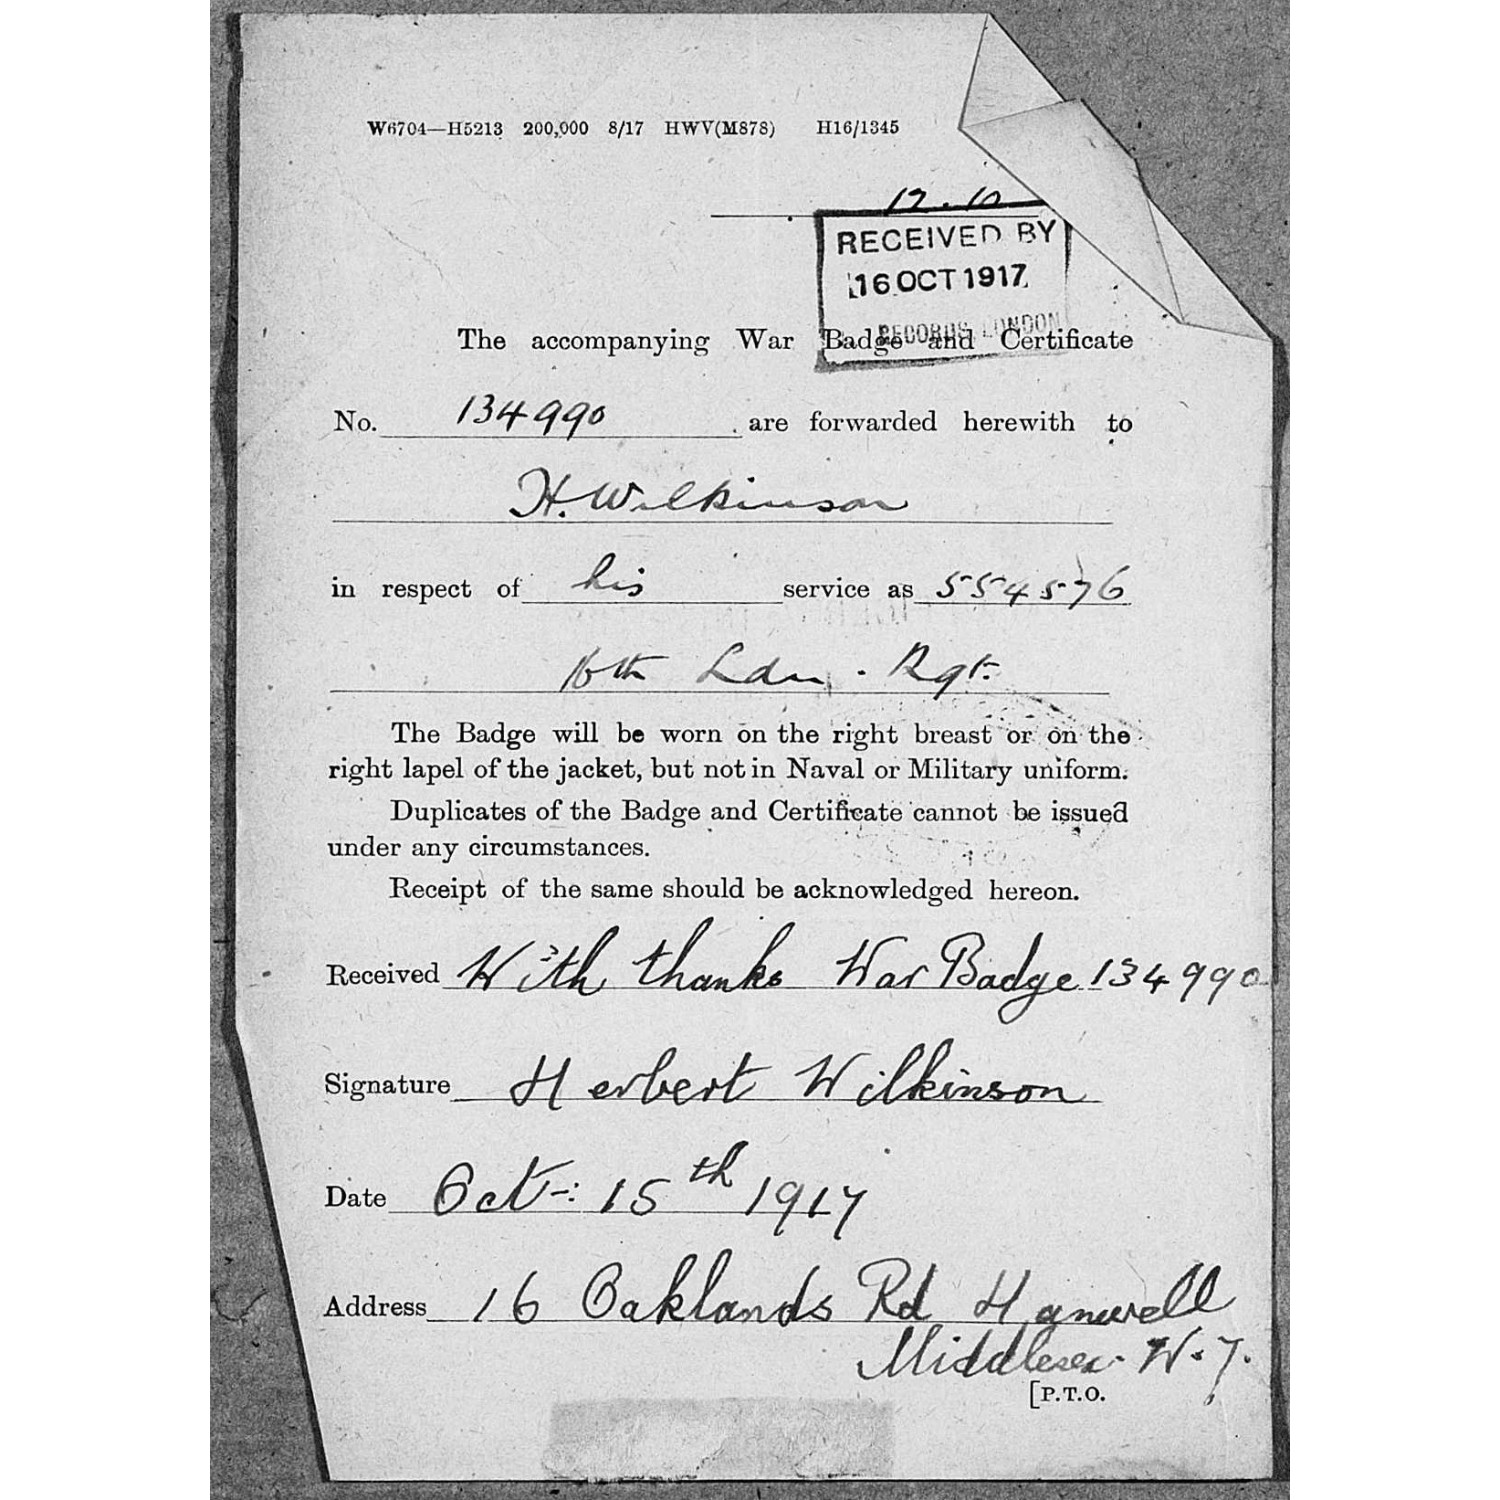 W6704—H5213 200,000 8/17 HWV(M878) H16/1345
12.10
RECEIVED BY
16 OCT 1917
RECORDS LONDON
The accompanying War Badge and Certificate
No. 134990 are forwarded herewith to
H. Wilkinson
in respect of his service as 554576
16th Ldn. Rgt.
The Badge will be worn on the right breast or on the
right lapel of the jacket, but not in Naval or Military uniform.
Duplicates of the Badge and Certificate cannot be issued
under any circumstances.
Receipt of the same should be acknowledged hereon.
Received With thanks War Badge 134990
Signature Herbert Wilkinson
Date Oct-: 15th 1917
Address 16 Oaklands Rd Hanwell
Middlesex. W.7.
[P.T.O.